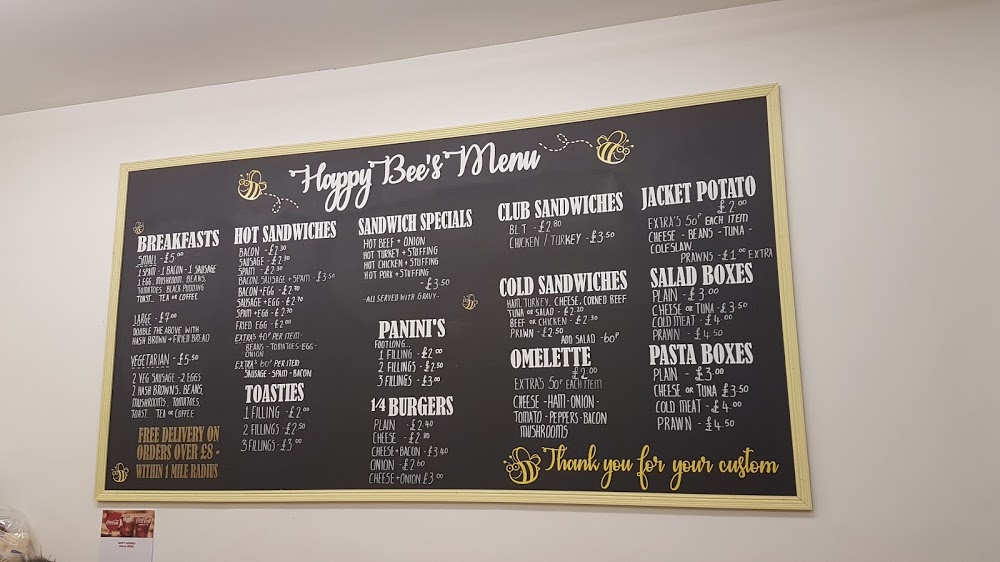 Happy Bee's Menu
BREAKFASTS
SMALL - £5.00
1 SPAM - 1 BACON - 1 SAUSAGE
1 EGG. MUSHROOM. BEANS.
TOMATOES. BLACK PUDDING
TOAST.. TEA OR COFFEE
LARGE - £7.00
DOUBLE THE ABOVE WITH
HASH BROWN + FRIED BREAD
VEGETARIAN - £5.50
2 VEG SAUSAGE - 2 EGGS
2 HASH BROWNS. BEANS,
MUSHROOMS, TOMATOES,
TOAST.. TEA OR COFFEE
FREE DELIVERY ON
ORDERS OVER £8 -
WITHIN 1 MILE RADIUS
HOT SANDWICHES
BACON - £2.30
SAUSAGE - £2.30
SPAM - £2.30
BACON, SAUSAGE + SPAM - £3.50
BACON + EGG - £2.70
SAUSAGE + EGG - £2.70
SPAM + EGG - £2.70
FRIED EGG - £2.00
EXTRA'S 40P PER ITEM -
BEANS - TOMATOES - EGG -
ONION
EXTRA'S 60P PER ITEM
SAUSAGE - SPAM - BACON
TOASTIES
1 FILLING - £2.00
2 FILLINGS - £2.50
3 FILLINGS - £3.00
SANDWICH SPECIALS
HOT BEEF + ONION
HOT TURKEY + STUFFING
HOT CHICKEN + STUFFING
HOT PORK + STUFFING
- £3.50
- ALL SERVED WITH GRAVY -
PANINI'S
FOOTLONG...
1 FILLING - £2.00
2 FILLINGS - £2.50
3 FILLINGS - £3.00
1/4 BURGERS
PLAIN - £2.40
CHEESE - £2.80
CHEESE + BACON - £3.40
ONION - £2.60
CHEESE + ONION £3.00
CLUB SANDWICHES
BL.T - £2.80
CHICKEN / TURKEY - £3.50
COLD SANDWICHES
HAM, TURKEY, CHEESE, CORNED BEEF
TUNA OR SALAD - £2.20
BEEF OR CHICKEN - £2.30
PRAWN - £2.50
ADD SALAD - 60P
OMELETTE
£2.00
EXTRA'S 50P EACH ITEM
CHEESE - HAM - ONION -
TOMATO - PEPPERS - BACON
MUSHROOMS
JACKET POTATO
£2.00
EXTRA'S 50P EACH ITEM
CHEESE - BEANS - TUNA -
COLESLAW.
PRAWNS - £1.00 EXTRA
SALAD BOXES
PLAIN - £3.00
CHEESE OR TUNA - £3.50
COLD MEAT - £4.00
PRAWN - £4.50
PASTA BOXES
PLAIN - £3.00
CHEESE OR TUNA £3.50
COLD MEAT - £4.00
PRAWN - £4.50
Thank you for your custom
Coca-Cola